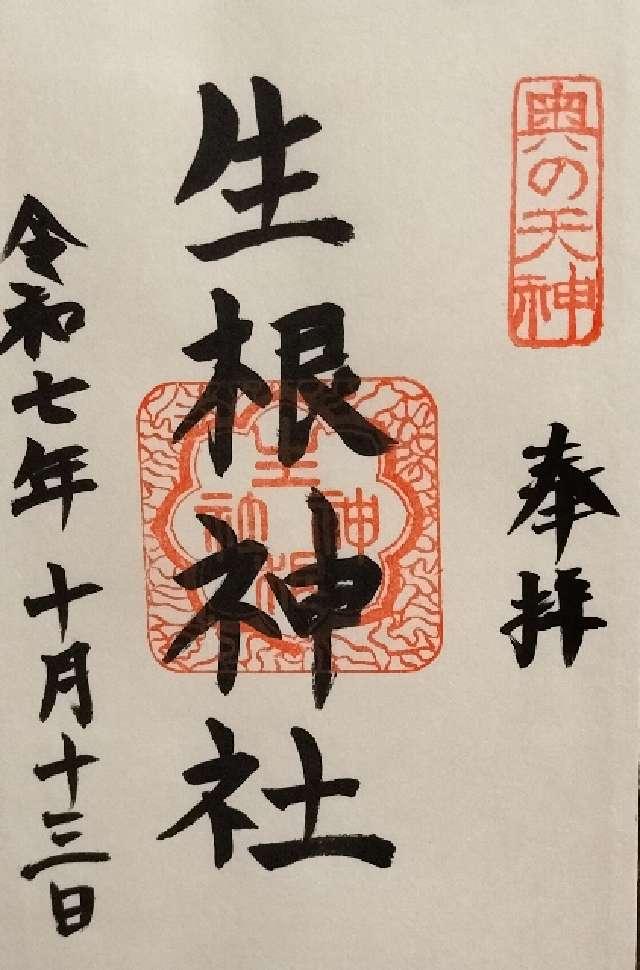 奥の天神
奉拝
生根神社
生根神社
令和七年十月十三日